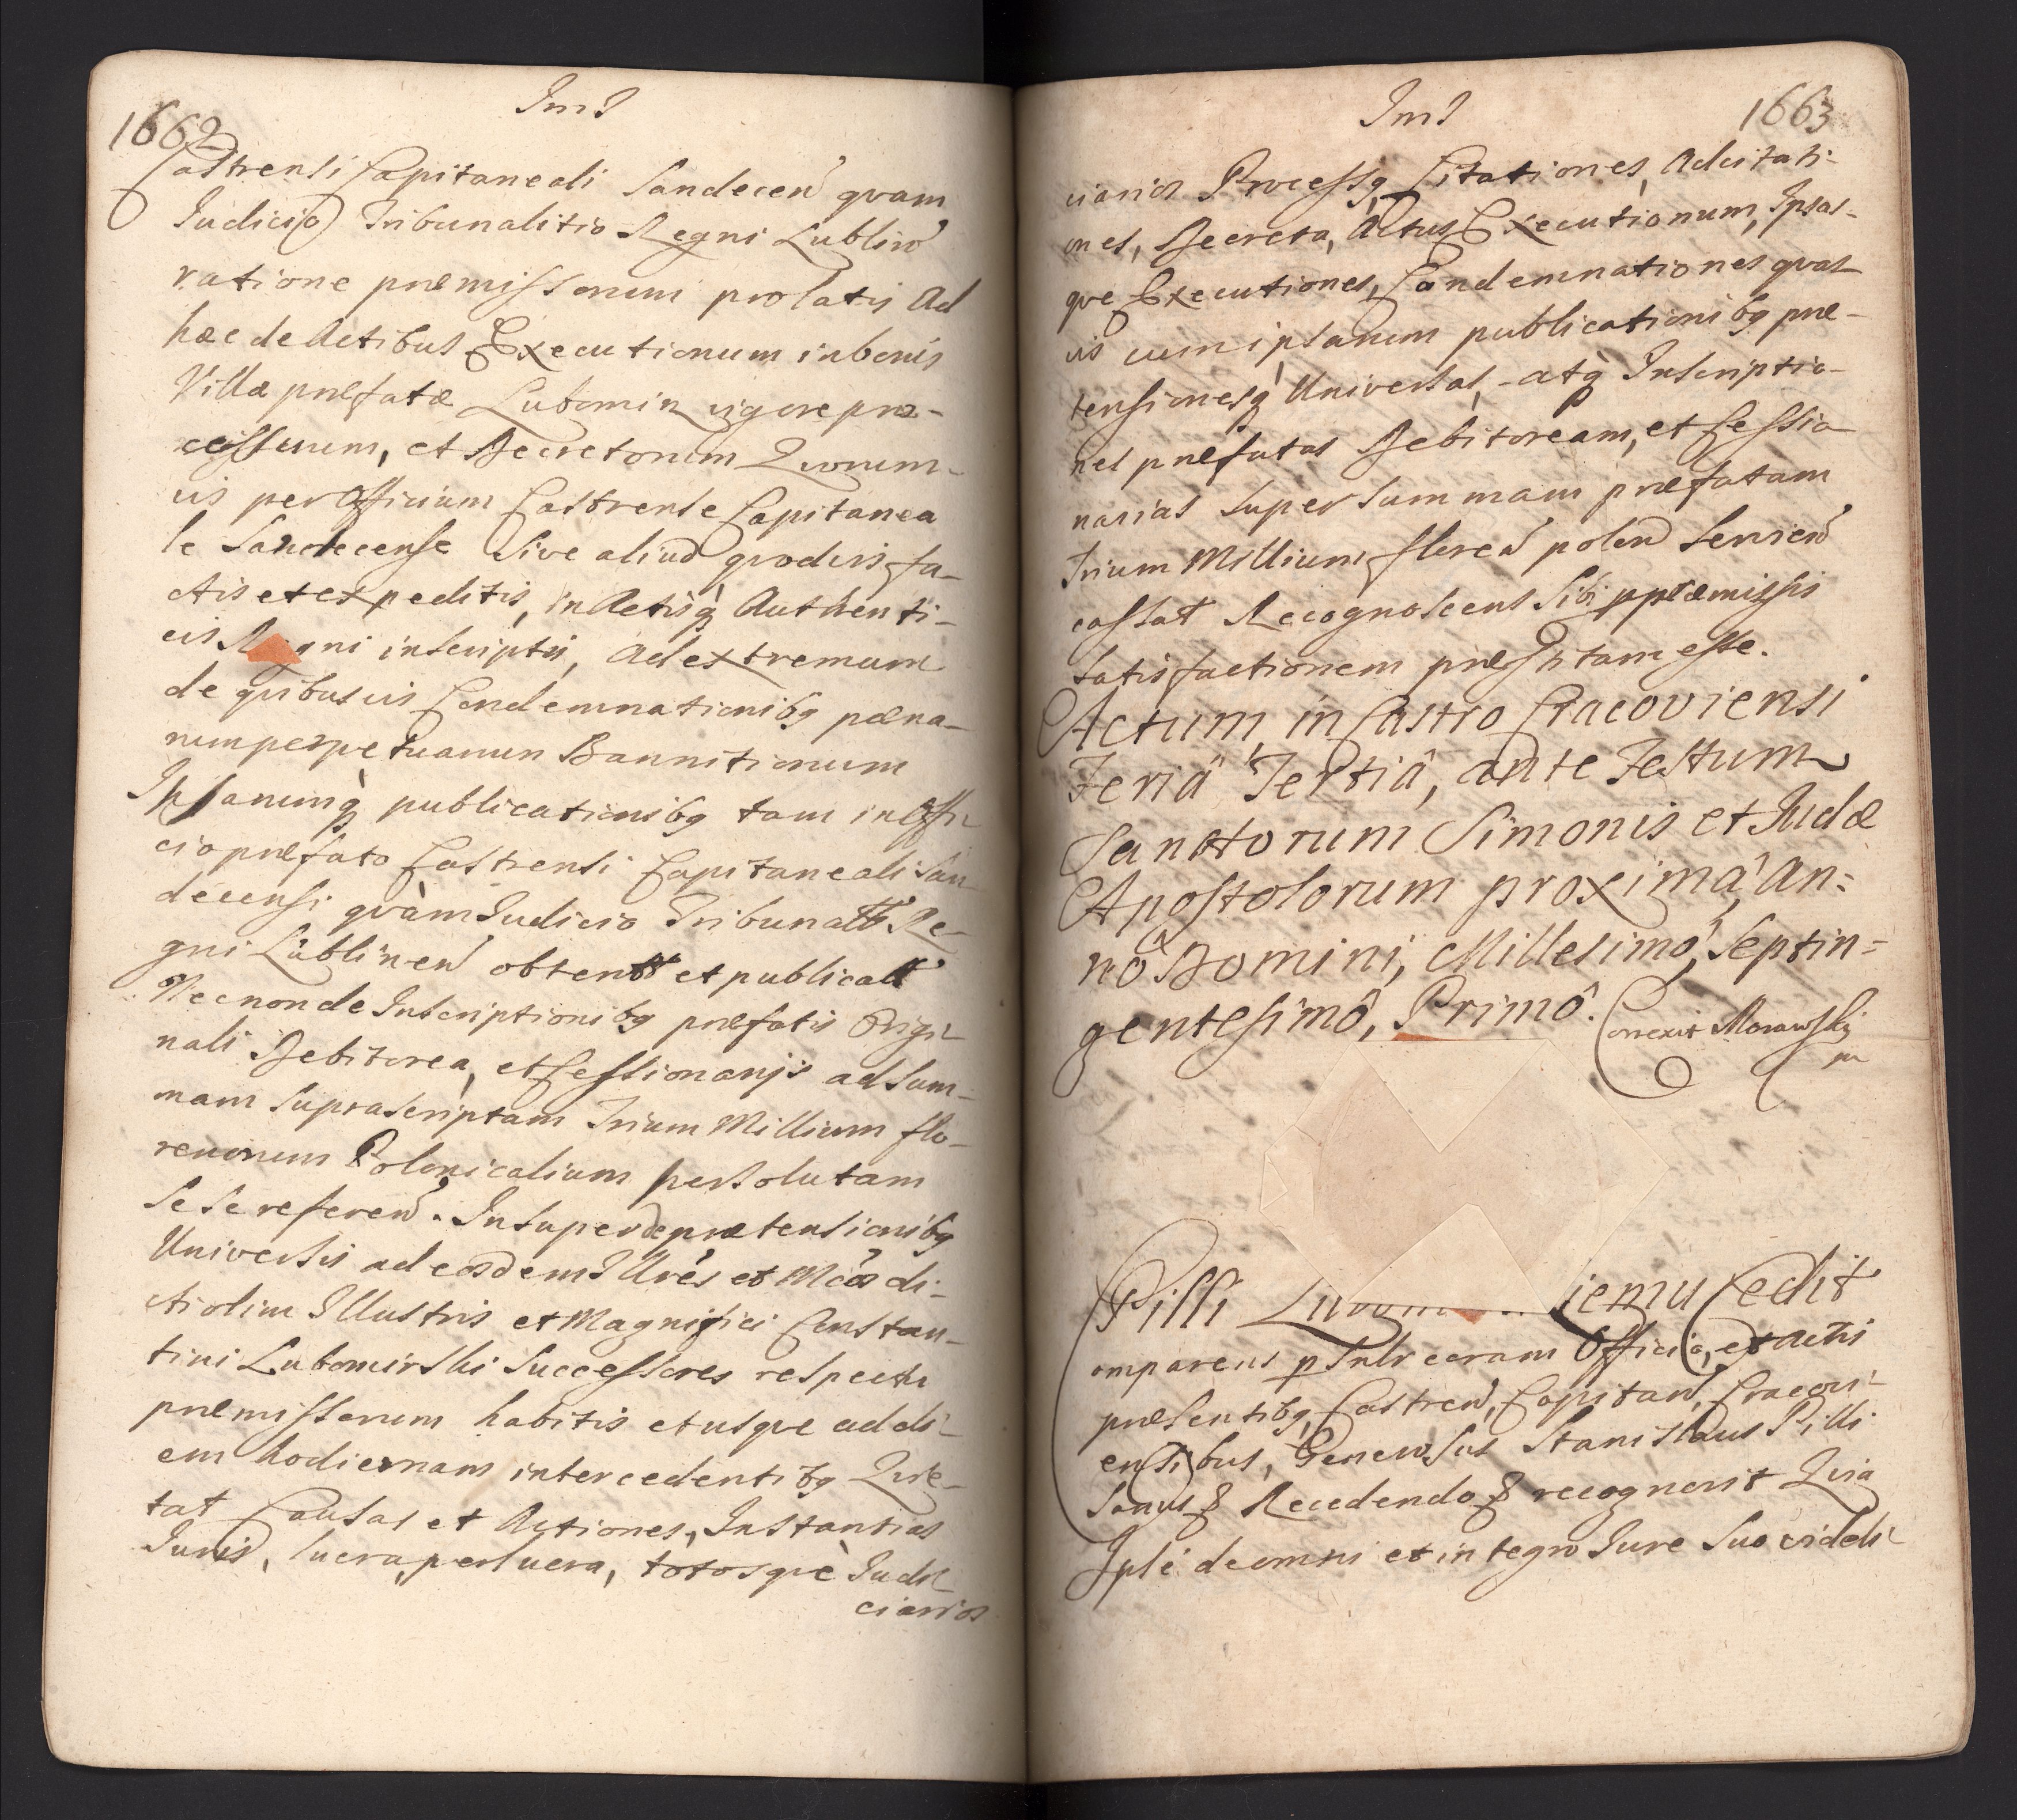 1662
Ind
Castrensi Capitaneali Sandecen̄ qvam
Iudicio Tribunalitio Regni Lublin̄
ratione præmissorum prolatis Ad
hæc de Actibus Executionum in bonis
Villæ præfatæ Lubomirz vigore pro-
cessuum, et Decretorum Quorum-
vis per Officium Castrense Capitanea
le Sandecense sive aliud qvodvis fa-
ctis et expeditis, in Actisq̀ Authenti-
cis Regni inscriptis, Ad extremum
de qvibusvis Condemnationibq pæna-
rum perpetuarum Bannitionum
Ipsarumq̀ publicationibq tam in Offi-
cio præfato Castrensi Capitaneali San
decensi qvàm Iudicio Tribunalt Re-
gni Lublinen̄ obtent et publicat
Necnon de Inscriptionibq præfatis Origi-
nali Debitorea, et Cessionarijs ad sum-
mam supra scriptam Trium Millium flo-
renorum Polonicalium persolutam
se se referen̄. Insuper de prætensionibq
Universis ad eosdem Illres et Mcos di-
cti olim Illustris et Magnifici Constan-
tini Lubomirski Successores respectu
præmissorum habitis et usqve ad di-
em hodiernam intercedentibq Qvie-
tat Causas et Actiones, Instantias
Iuris, lucra, perlucra, totosqvè Iudi-
ciarios
Ind
1663
ciarios Processq, Citationes, Adcitati-
ones, Decreta, Actus Executionum, Ipsas-
qve Executiones, Condemnationes qvas-
vis cum ipsarum publicationibq præ-
tensionesq̀ Universas, atq̀ Inscriptio-
nes præfatas Debitoream, et Cessio
narias super summam præfatam
Trium Millium floren̄ polon̄ servien̄
cassat Recognoscens sibi p præmissis
satisfactionem præstitam esse.
Actum in Castro Cracoviensi
Feriâ Tertiâ, ante Festum
Sanctorum Simonis et Iudæ
Apostolorum proximâ, An:
nô Domini, Millesimô, Septin=
gentesimô, Primô. Correxit Morawski
m
Pilli iemu Cedit
omparens psnlr coram Officio, et Actis
præsentibq, Castren̄, Capitan̄, Cracovi-
ensibus, Generosus Stanislaus Pilli
sanus & Recedendo & recognovit Quia
Ipse de omni et integro Iure suo videli-